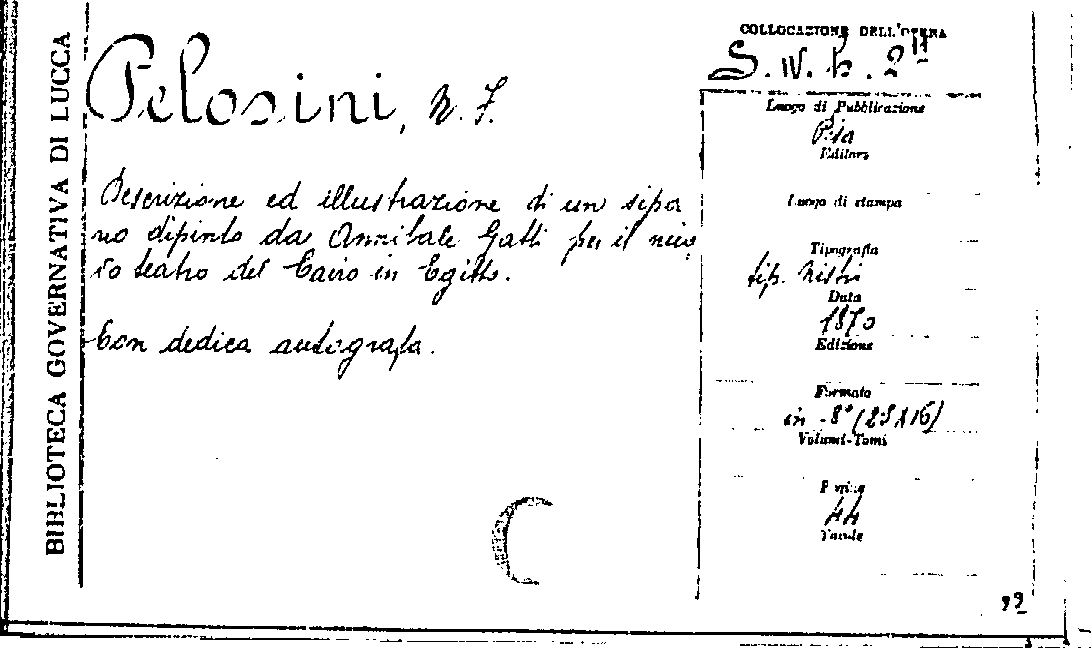 BIBLIOTECA GOVERNATIVA DI LUCCA
Pelosini, N. F.
Descrizione ed illustrazione di un sipa
rio dipinto da Annibale Gatti per il nuo,
vo teatro del Cairo in Egitto.
Con dedica autografa.
COLLOCAZIONE DELL'OPERA
S. IV. h.
Luogo di Pubblicazione
Pisa
Editore
Luogo di stampa
Tipografia
tip. Nistri
Data
1870
Edizione
Formato
in -8° (25X16)
Volumi-Tomi
Pagine
44
Tavole